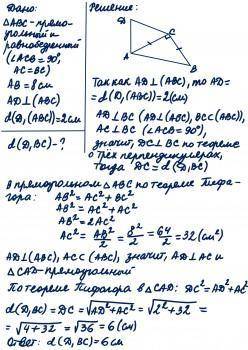 Дано:
△ABC - прямо-
угольный и
равнобедренный
(∠ACB = 90°,
AC = BC)
AB = 8 см
AD⊥(ABC)
d(D,(ABC)) = 2 см
d(D,BC) - ?
Решение:
D
A
C
B
Так как AD⊥(ABC), то AD =
= d(D,(ABC)) = 2(см)
AD⊥BC (AD⊥(ABC), BC⊂(ABC),
AC⊥BC (∠ACB = 90°),
значит, DC⊥BC по теореме
о трех перпендикулярах,
тогда DC = d(D,BC)
В прямоугольном △ABC по теореме Пифа-
гора: AB² = AC² + BC²
AB² = AC² + AC²
AB² = 2AC²
AC² = AB²/2 = 8²/2 = 64/2 = 32 (см²)
AD⊥(ABC), AC⊂(ABC), значит, AD⊥AC и
△CAD - прямоугольный
По теореме Пифагора в △CAD: DC² = AD² + AC²
d(D,BC) = DC = √AD² + AC² = √2² + 32 =
= √4 + 32 = √36 = 6 (см)
Ответ: d(D,BC) = 6 см